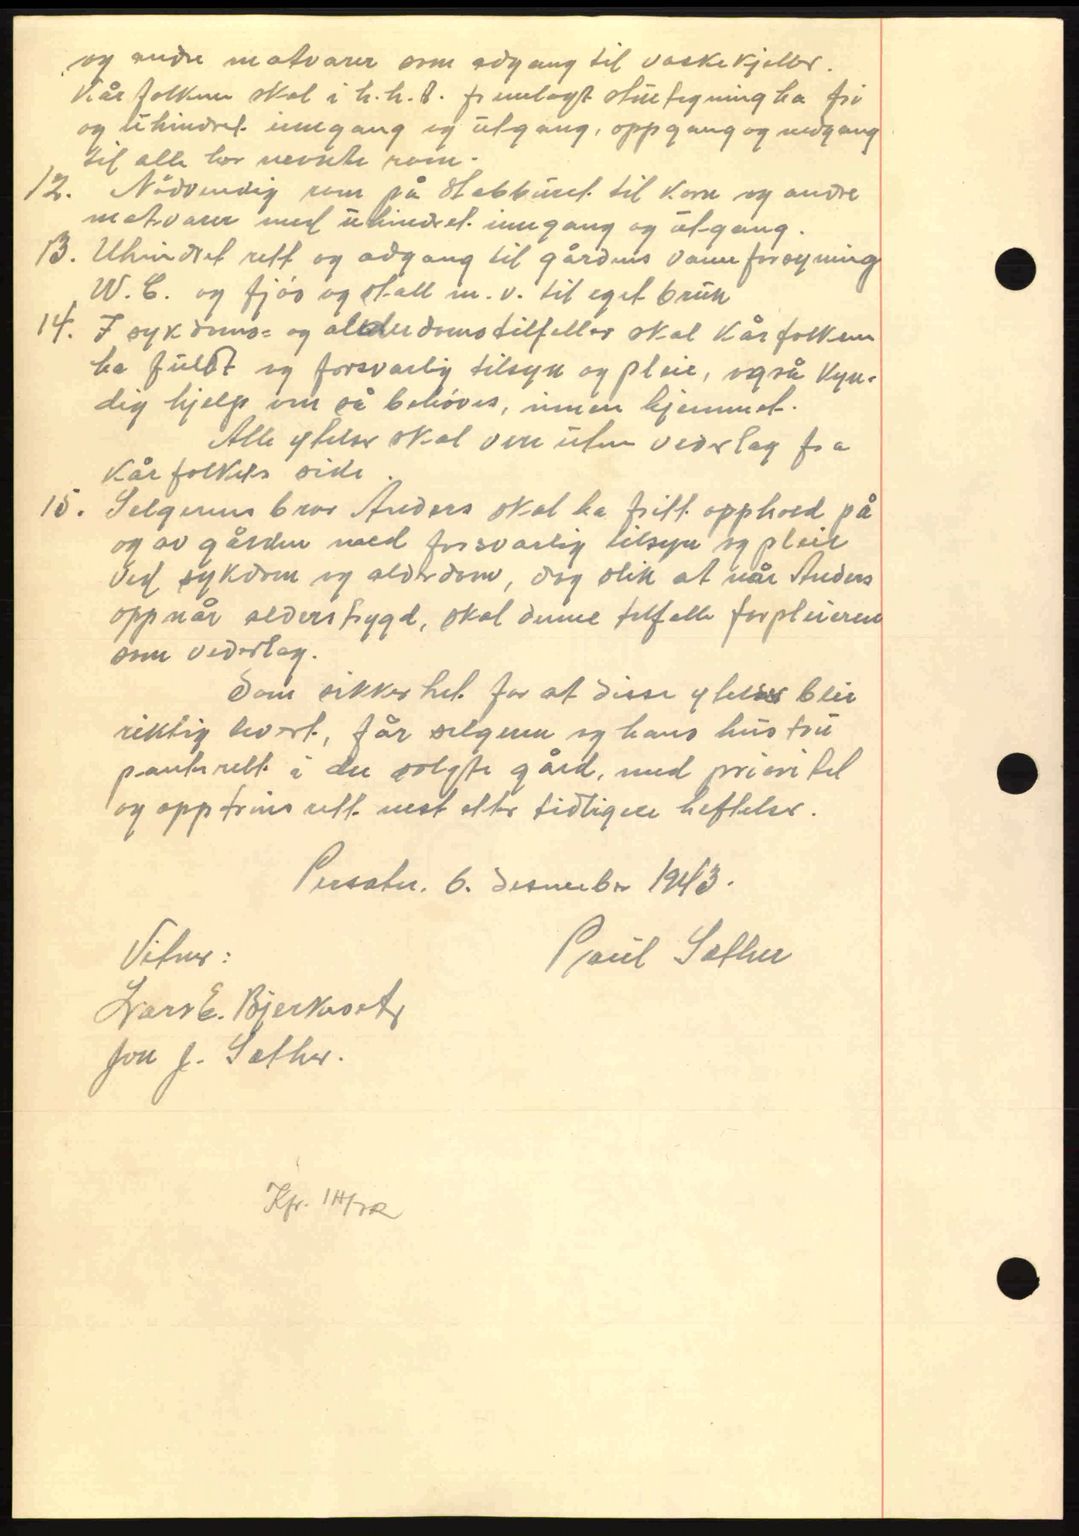 og andre matvarer som adgang til vaskekjeller.
Kårfolkene skal i h.h.t. fremlagt stuetegning ha fri
og uhindret inngang og utgang, oppgang og nedgang
til alle her nevnte rom.
12. Nödvendig rom på stabburet til korn og andre
matvarer med uhindret inngang og utgang.
13. Uhindret rett og adgang til gårdens vannforsyning
W.C. og fjös og stall m.v. til eget bruk
14. I sykdoms= og alderdomstilfeller skal kårfolkene
ha fuldt og forsvarlig tilsyn og pleie, også kyn-
dig hjelp om så behöves, innen hjemmet.
Alle ytelser skal vere uten vederlag fra
kårfolkets side.
15. Selgerens bror Anders skal ha fritt opphold på
og av gården med forsvarlig tilsyn og pleie
ved sykdom og alderdom, dog slik at når Anders
oppnår alderstrygd, skal denne tilfalle forpleieren
som vederlag.
Som sikkerhet for at disse ytelser blir
riktig levert, får selgeren og hans hustru
panterett i den solgte gård, med prioritet
og opptrinsrett nest etter tidligere heftelser.
Persater. 6. desember 1943.
Vitner:
Paul Sæther
Lars E. Bjerkeset
Jon J. Sæther.
Kfr.